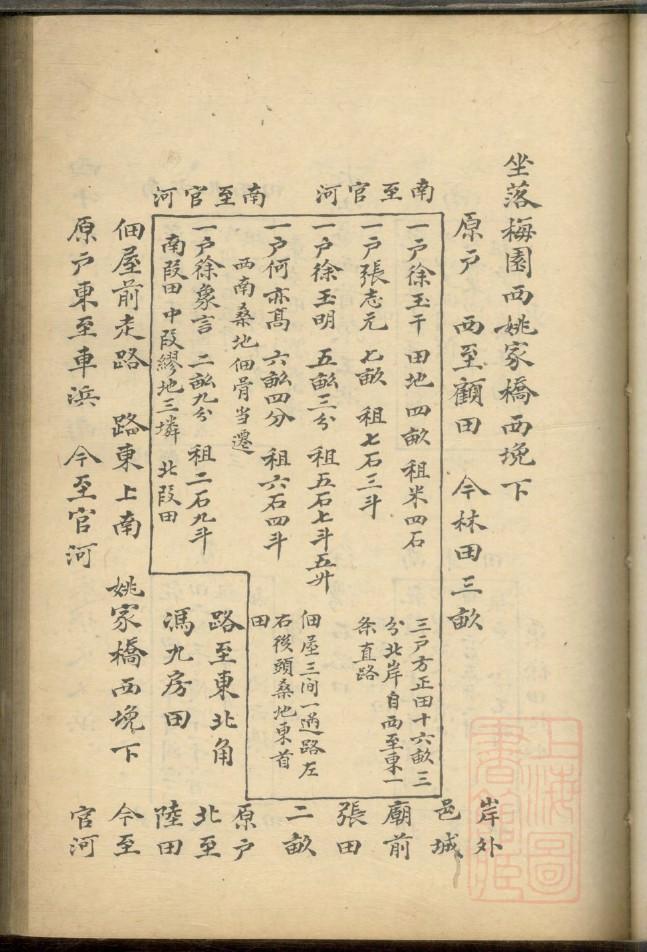 坐落梅園西姚家橋西堍下
原戶　西至顧田　今林田三畝
南至官河
南至官河
一戶徐玉干　田地四畝　祖米四石
一戶張志元　七畝　祖七石三斗
一戶徐玉明　五畝三分　祖五石七斗五升
一戶何亦髙　六畝四分　祖六石四斗
西南桑地佃骨当還
一戶徐象言　二畝九分　祖二石九斗
南段田　中段繆地三墳　北段田
三戶方正田十六畝三
分北岸自西至東一
条直路
佃屋三间一過路左
右後頭桑地東首
田
路至東北角
馮九房田
佃屋前走路　路東上南　姚家橋西堍下
原戶東至車浜　今至官河
岸外
邑城
廟前
張田
二畝
原戶
北至
陸田
今至
官河
上海圖
書館臧